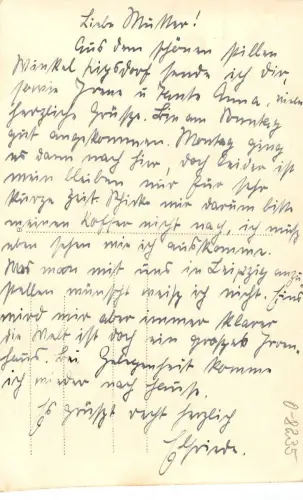 Liebe Mutter!
Aus dem schönen stillen
Winkel Kipsdorf sende ich dir,
sowie Irene u Tante Anna, viele
herzliche Grüsze. Bin am Sonntag
gut angekommen. Montag ging
es dann nach hier, doch leider ist
mein bleiben nur für sehr
kurze Zeit. Schicke mir darum bitte
meinen Koffer nicht nach, ich musz
eben sehen wie ich auskomme.
Was man mit uns in Leipzig anzu
stellen wünscht weisz ich nicht. Eins
wird mir aber immer klarer
die Welt ist doch ein groszes Irren-
haus. Bei Gelegenheit komme
ich wieder nach Hause.
Es grüszt recht herzlich
Elfriede.
0-8235